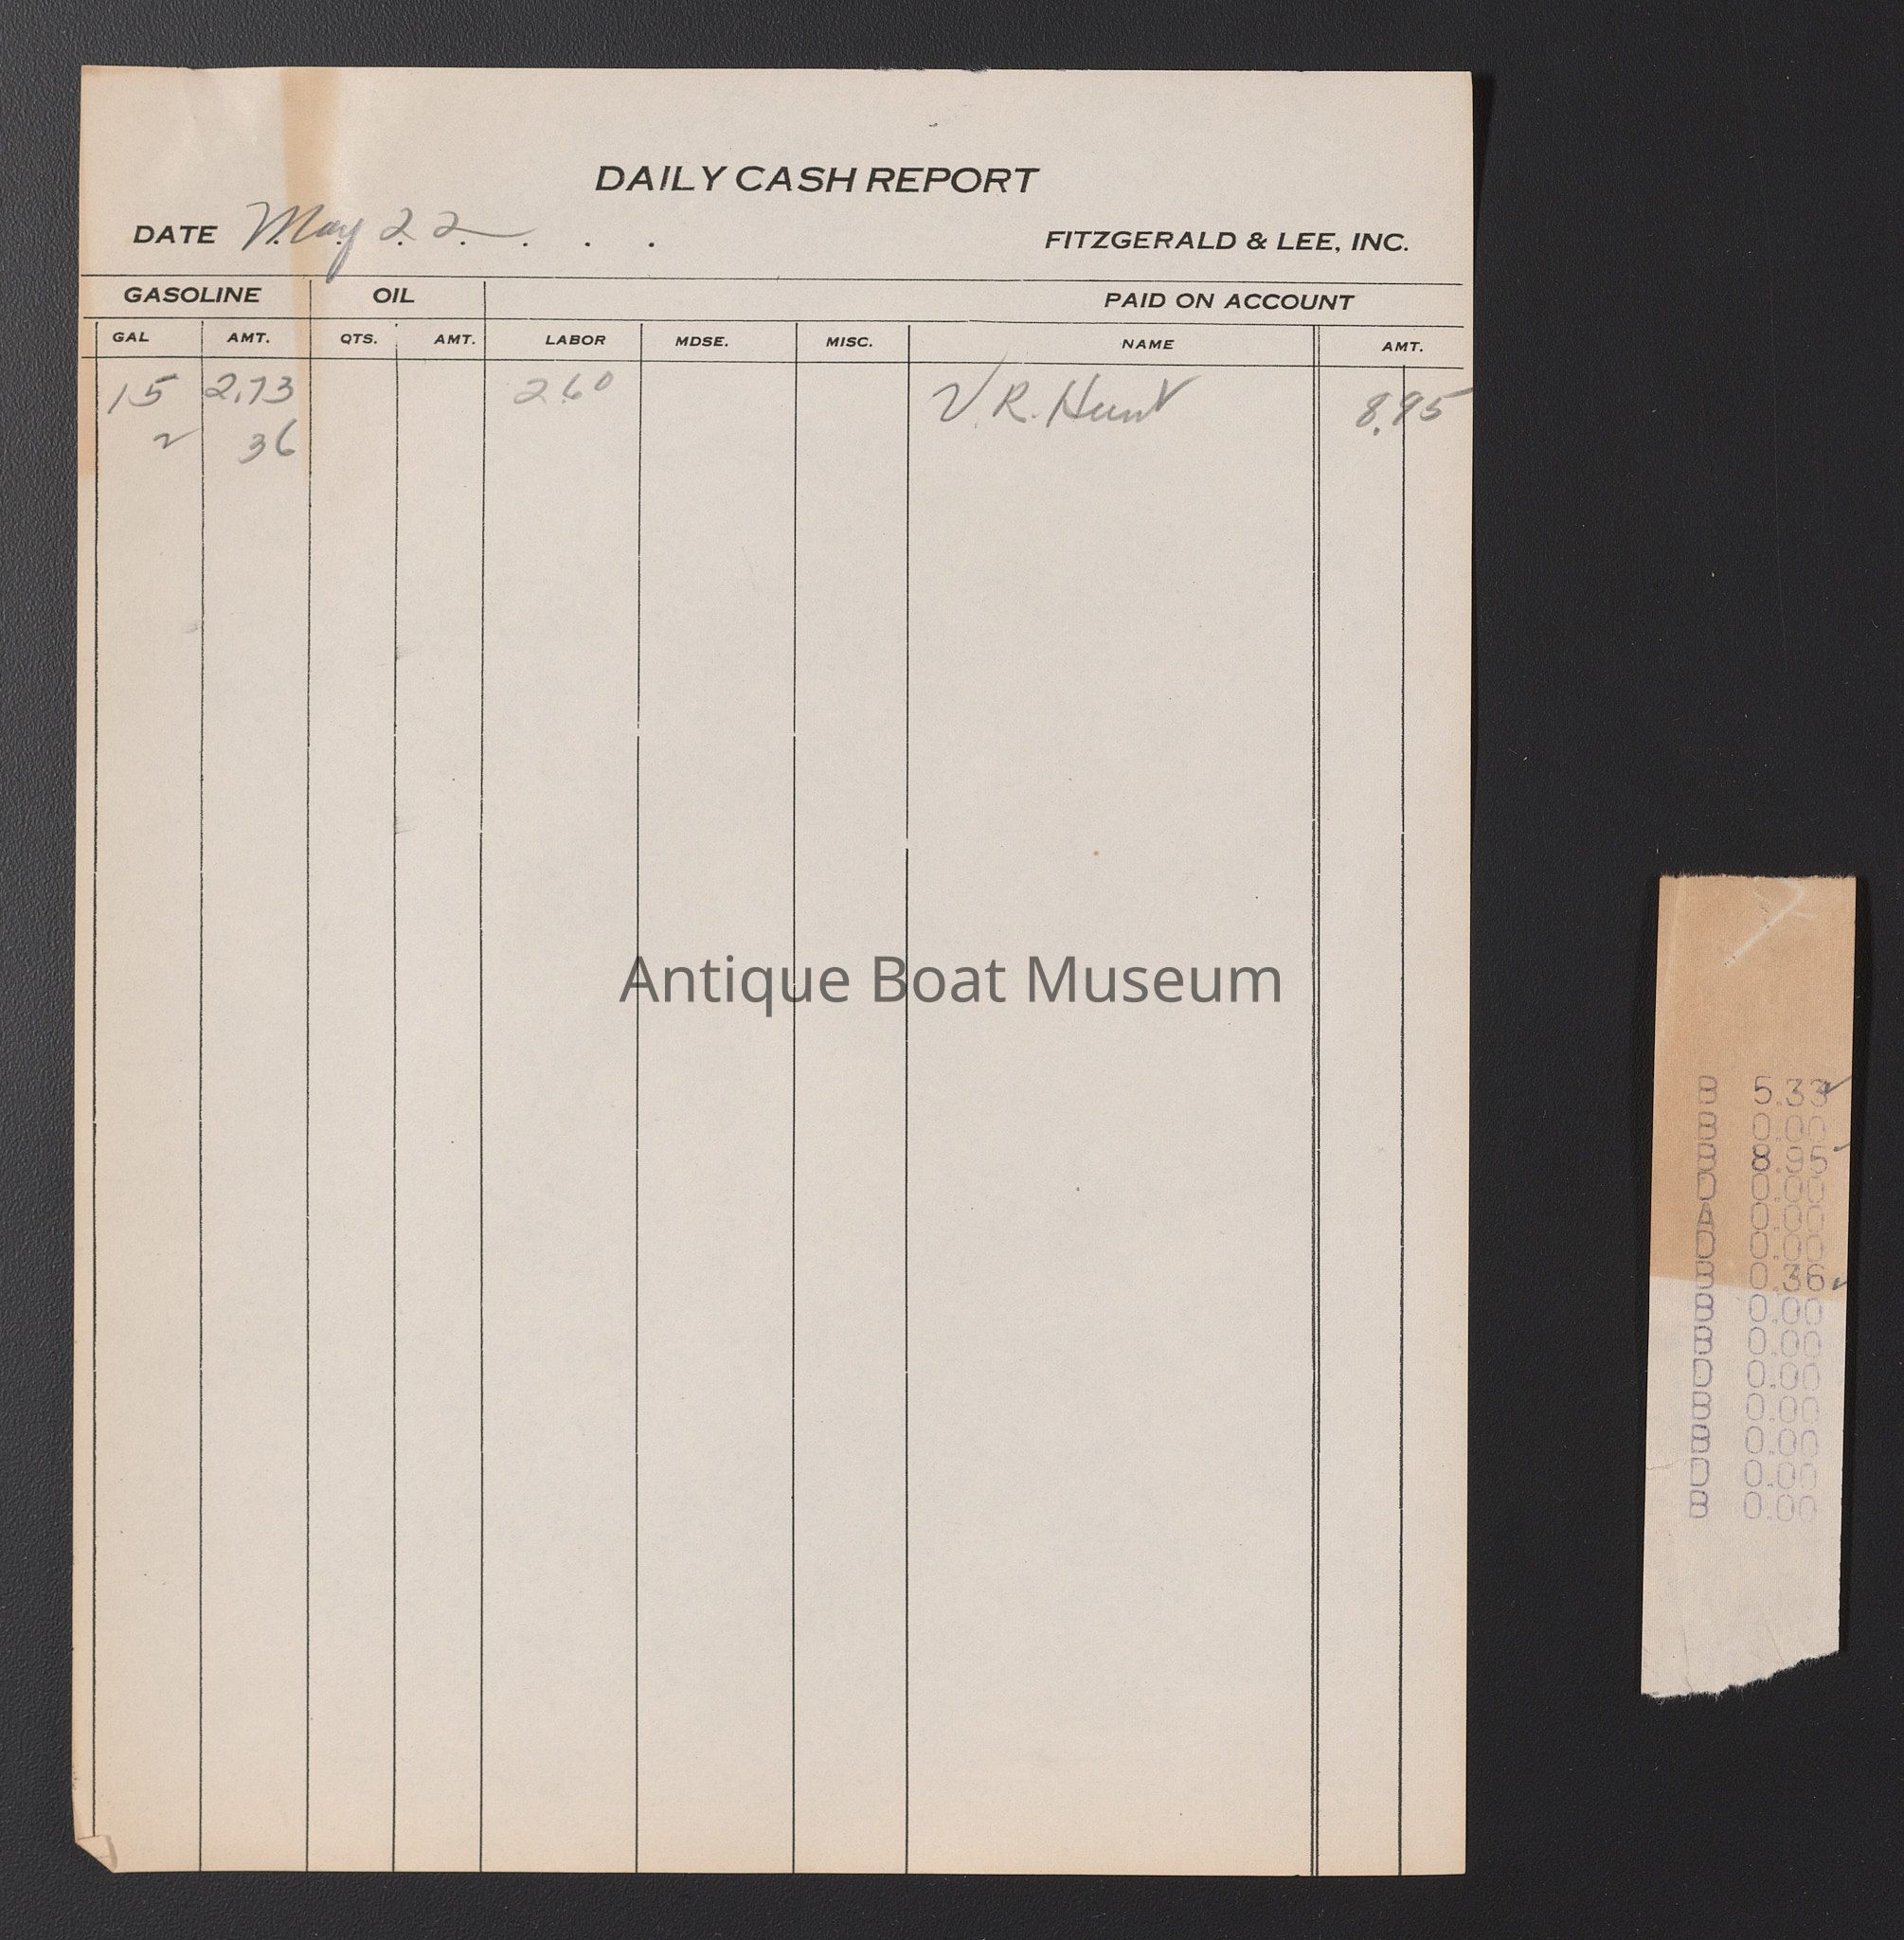 DAILY CASH REPORT
DATE May 22 . . .
FITZGERALD & LEE, INC.
GASOLINE OIL PAID ON ACCOUNT
GAL AMT. QTS. AMT. LABOR MDSE. MISC. NAME AMT.
15 2.73 2.60 V. R. Hunt 8.95
2 36
Antique Boat Museum
B 5.33
B 0.00
B 8.95
D 0.00
A 0.00
D 0.00
B 0.36
B 0.00
B 0.00
D 0.00
B 0.00
B 0.00
D 0.00
B 0.00